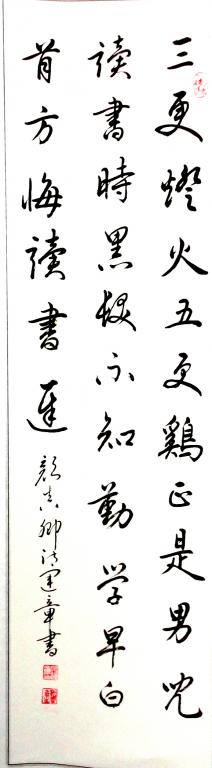 三更燈火五更鷄正是男兒
讀書時黑髮不知勤學早白
首方悔讀書遲
顏真卿詩運章書